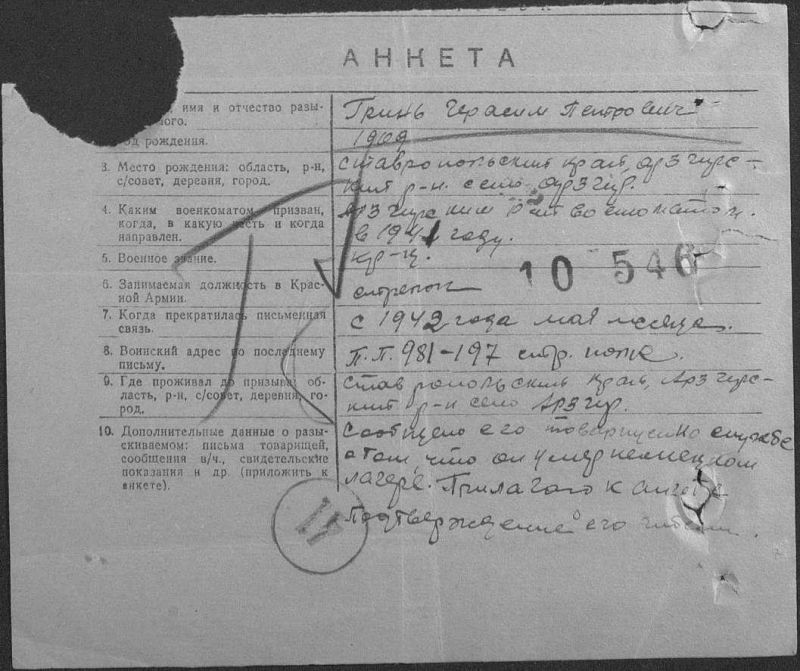 АНКЕТА
имя и отчество разы-
ного.
Гринь Герасим Петрович
од рождения.
1909
3. Место рождения: область, р-н,
с/совет, деревня, город.
Ставропольский край, Арзгирс-
кий р-н. село Арзгир.
4. Каким военкоматом призван,
когда, в какую часть и когда
направлен.
Арзгирским Рай военкоматом.
в 1941 году.
5. Военное звание.
кр-ц.
10 546
6. Занимаемая должность в Крас-
ной Армии.
стрелок
7. Когда прекратилась письменная
связь.
с 1942 года мая месяца.
8. Воинский адрес по последнему
письму.
П.П. 981-197 стр. полк.
9. Где проживал до призыва: об-
ласть, р-н, с/совет, деревня, го-
род.
Ставропольский край, Арзгирс-
кий р-н село Арзгир.
10. Дополнительные данные о разы-
скиваемом: письма товарищей,
сообщения в/ч., свидетельские
показания и др (приложить к
анкете).
Сообщено его товарищем по службе
о том, что он умер немецком
лагере. Прилагаю к анкете
Подтверждение его гибели.
41